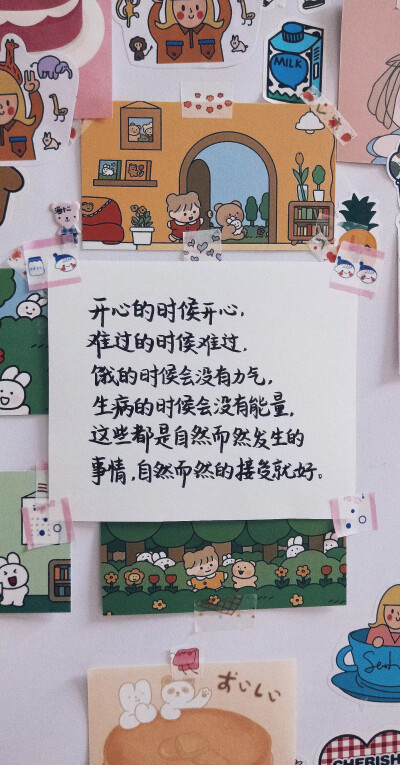 MILK
开心的时候开心,
难过的时候难过.
饿的时候会没有力气,
生病的时候会没有能量,
这些都是自然而然发生的
事情,自然而然的接受就好。
おいしい
CHERISH